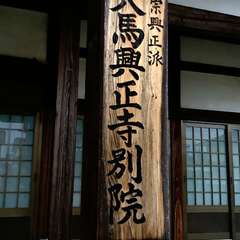 宗興正派
馬興正寺別院